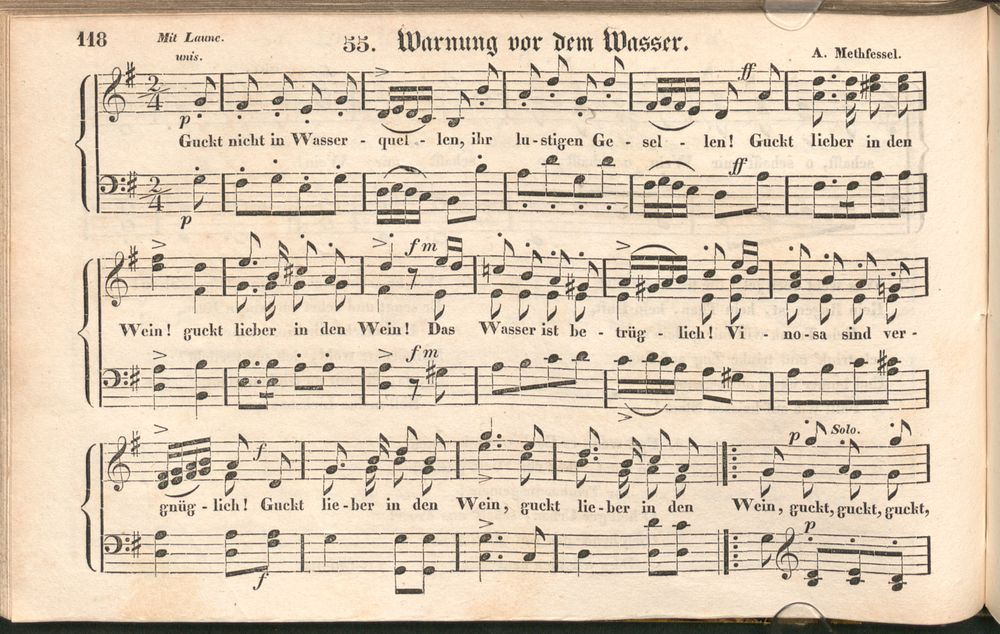 118
Mit Laune.
55. Warnung vor dem Wasser.
unis.
A. Methfessel.
ff
p
Guckt nicht in Wasser - quel - len, ihr lu-stigen Ge - sel - len! Guckt lieber in den
ff
p
f m
Wein! guckt lieber in den Wein! Das Wasser ist be - trüg - lich! Vi - no-sa sind ver-
f m
p Solo.
f
gnüg - lich! Guckt lie-ber in den Wein, guckt lie-ber in den Wein, guckt, guckt, guckt,
p
f